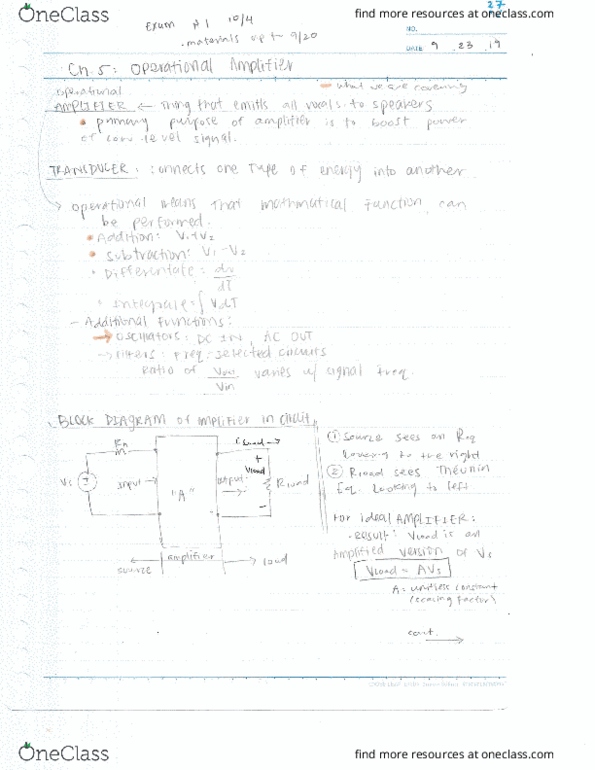 OneClass
find more resources at oneclass.com
27
Exam #1 10/4
. materials up to 9/20
NO.
DATE 9 . 23 . 19
Ch. 5: Operational Amplifier
what we are covering
operational
AMPLIFIER ← Thing that emitts all vocals to speakers
• primary purpose of amplifier is to boost power
of low level signal.
TRANSDUCER: connects one Type of energy into another
operational means That mathmatical function, can
be performed.
• Addition: V1+V2
• subtraction: V1-V2
• Differentate: dv
dT
• integrate: ∫ VdT
- Additional functions:
→ Oscillators: DC IN, AC OUT
→ filters: freq-selected circuits
Ratio of Vout varies w/ signal freq.
Vin
BLOCK DIAGRAM of amplifier in circuit
Vs
input →
"A"
output
iLoad →
+
Vload
-
Rload
source
amplifier
load
① source sees an Req
looking to the right
② Rload sees Thevnin
Eq. looking to left
For ideal AMPLIFIER:
. RESULT: Vload is an
Amplified version of Vs
Vload = AVs
A = unitless constant
(scaling factor)
cont.
OneClass
find more resources at oneclass.com